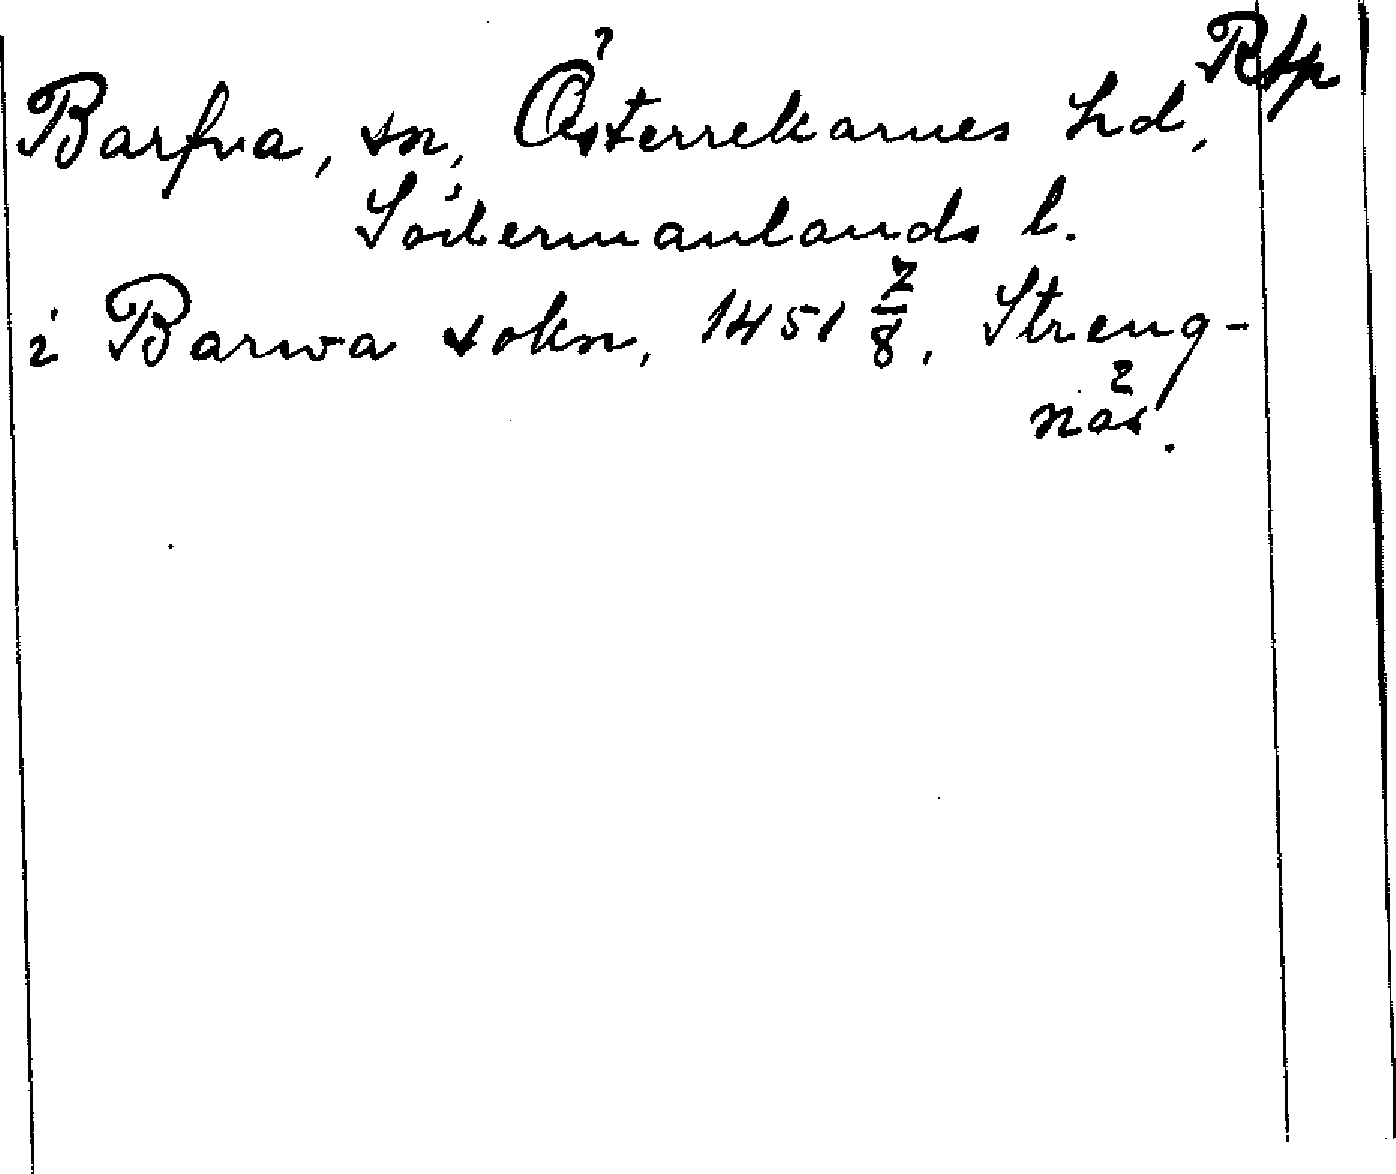 Rtp
Barfva, sn, Österrekarnes hd,
Södermanlands l.
i Barwa sokn, 1451 7/8, Streng-
näs.